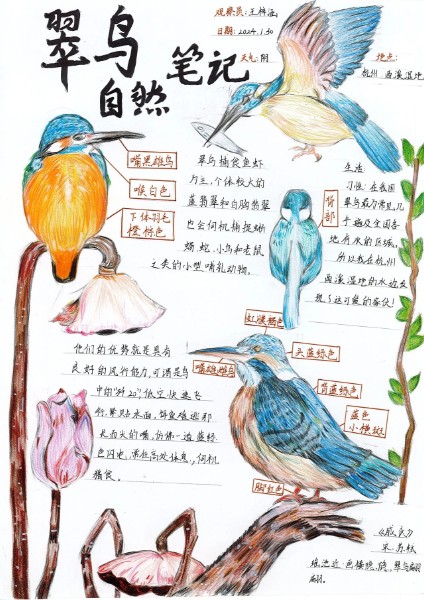 翠鸟
自然 笔记
观察员:王梓涵
日期:2024.1.30
天气:阴
地点:
杭州 西溪湿地
嘴黑雄鸟
喉白色
下体羽毛
橙棕色
翠鸟捕食鱼虾
为主,个体较大的
蓝翡翠和白胸翡翠
也会伺机捕捉蜥
蜴、蛇、小鸟和老鼠
之类的小型哺乳动物。
背部
生活
习性:在我国
翠鸟最为常见,几
乎遍及全国各
地有水的区域。
所以我在杭州
西溪湿地的水边发
现了这可爱的家伙!
他们的优势就是具有
良好的飞行能力,可谓是鸟
中的"歼20",低空快速飞
行,紧贴水面,鲜鱼难逃那
长而尖的嘴,仿佛一道蓝绿
色闪电,常在高处休息,伺机
捕食。
虹膜褐色
嘴雌雄鸟
头蓝绿色
背蓝绿色
蓝色
小横斑
脚红色
宋.苏轼